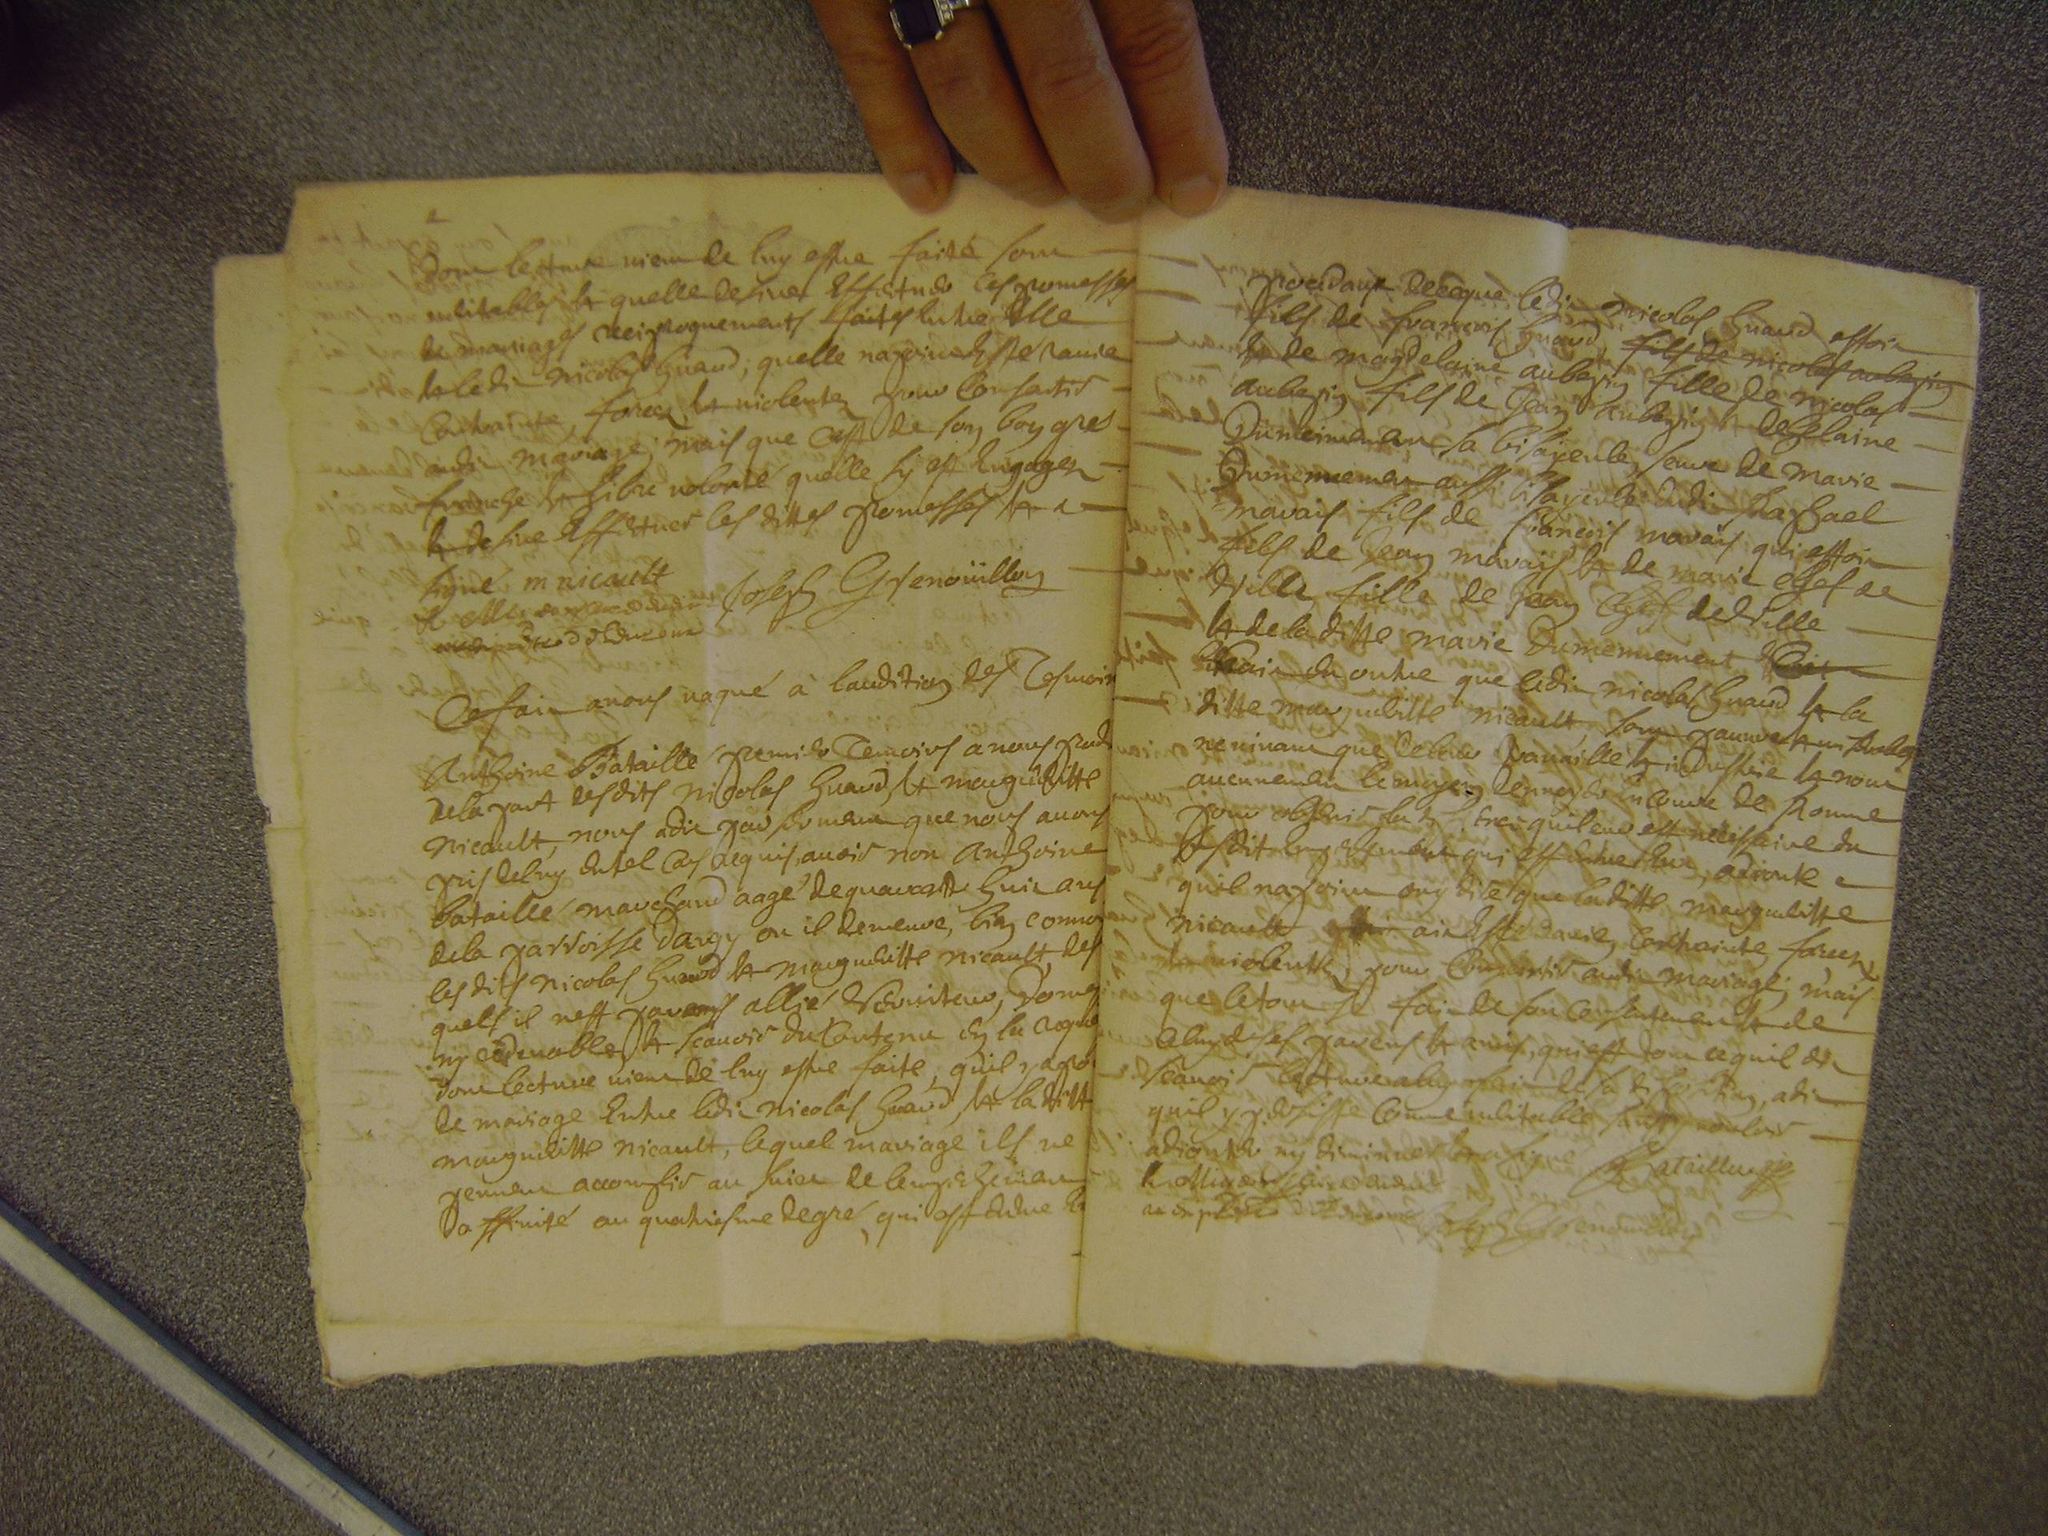 dont lecture vient de luy estre faite sont
veritables et quelle desire effectuer les promesses
de mariages reciproquements faites entre Elle
et ledit nicolas huard, quelle na point este ravie
contrainte, forcez et violentez pour Consentir
audit mariage, mais que cest de son bon gres
franche et libre volonté quelle sy est Engagez
et desire Effectuer les dittes promesses et a
signé m nicault
Joseph Grenoüillon
Ce fait avons vaqué à laudition des Tesmoin
Anthoine Bataille premier Temoins a nous produit
de la part desdits nicolas huard et margueritte
Nicault, nous a dit par serment que nous avons
pris de luy en tel cas requis, avoir non Anthoine
bataille marchand aagé de quarante huit ans
de la parroisse dargy ou il demeure, bien connoi
les dits nicolas huard et margueritte nicault, des
quels il nest parens allié serviteur, domes
ny redevable et scavoir du Contenu en la requ
dont lecture vient de luy estre faite, quil y a pro
de mariage Entre ledit nicolas huard et la ditte
margueritte nicault, lequel mariage ils ne
peuvent accomplir au sujet de lempechement
daffinité au quatriesme degré, qui est entre Eu
procedant de ce que ledit nicolas huard estoit
fils de françois huard fils de nicolas aubepin
et de magdelaine aubepin fille de nicolas
aubepin fils de Jean Aubepin et de helaine
Dumeinement sa bisayeule, seure de Marie
Dumennement aussi bisayeule dudit Raphael
mavais fils de françois mavais qui estoit
fils de Jean mavais et de marie chef de
ville fille de Jean Chef de Ville
et de la ditte marie Dumennement
en outre que ledit nicolas huard et la
ditte margueritte nicault, sont pauvres
ne vivant que de leur travaille et industrie et nont
aucunement le moyen denvoyer en Cour de Rome
pour obtenir la dispence quil leur est nécessaire du
susdit empeschement qui est entre Eux, adjoute
quil na point ouy dire que laditte margueritte
nicault ait esté ravie, contrainte, forcez
et violentez pour Consentir audit mariage, mais
que letout se fait de son consentement et de
celuy de ses parens et amis, qui est tout ce quil dit
scavoir lecture a luy fait de sa deposition, a dit
quil y persiste Comme veritable sans y vouloir
adjouter ny diminuer et a signé Bataille
Joseph Grenouillon